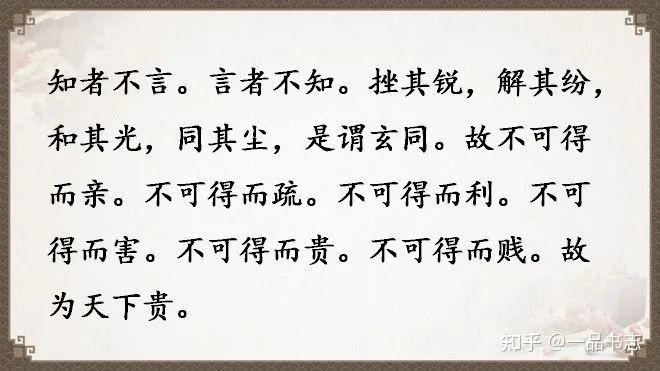 知者不言。言者不知。挫其锐，解其纷，
和其光，同其尘，是谓玄同。故不可得
而亲。不可得而疏。不可得而利。不可
得而害。不可得而贵。不可得而贱。故
为天下贵。
知乎 @一品书志